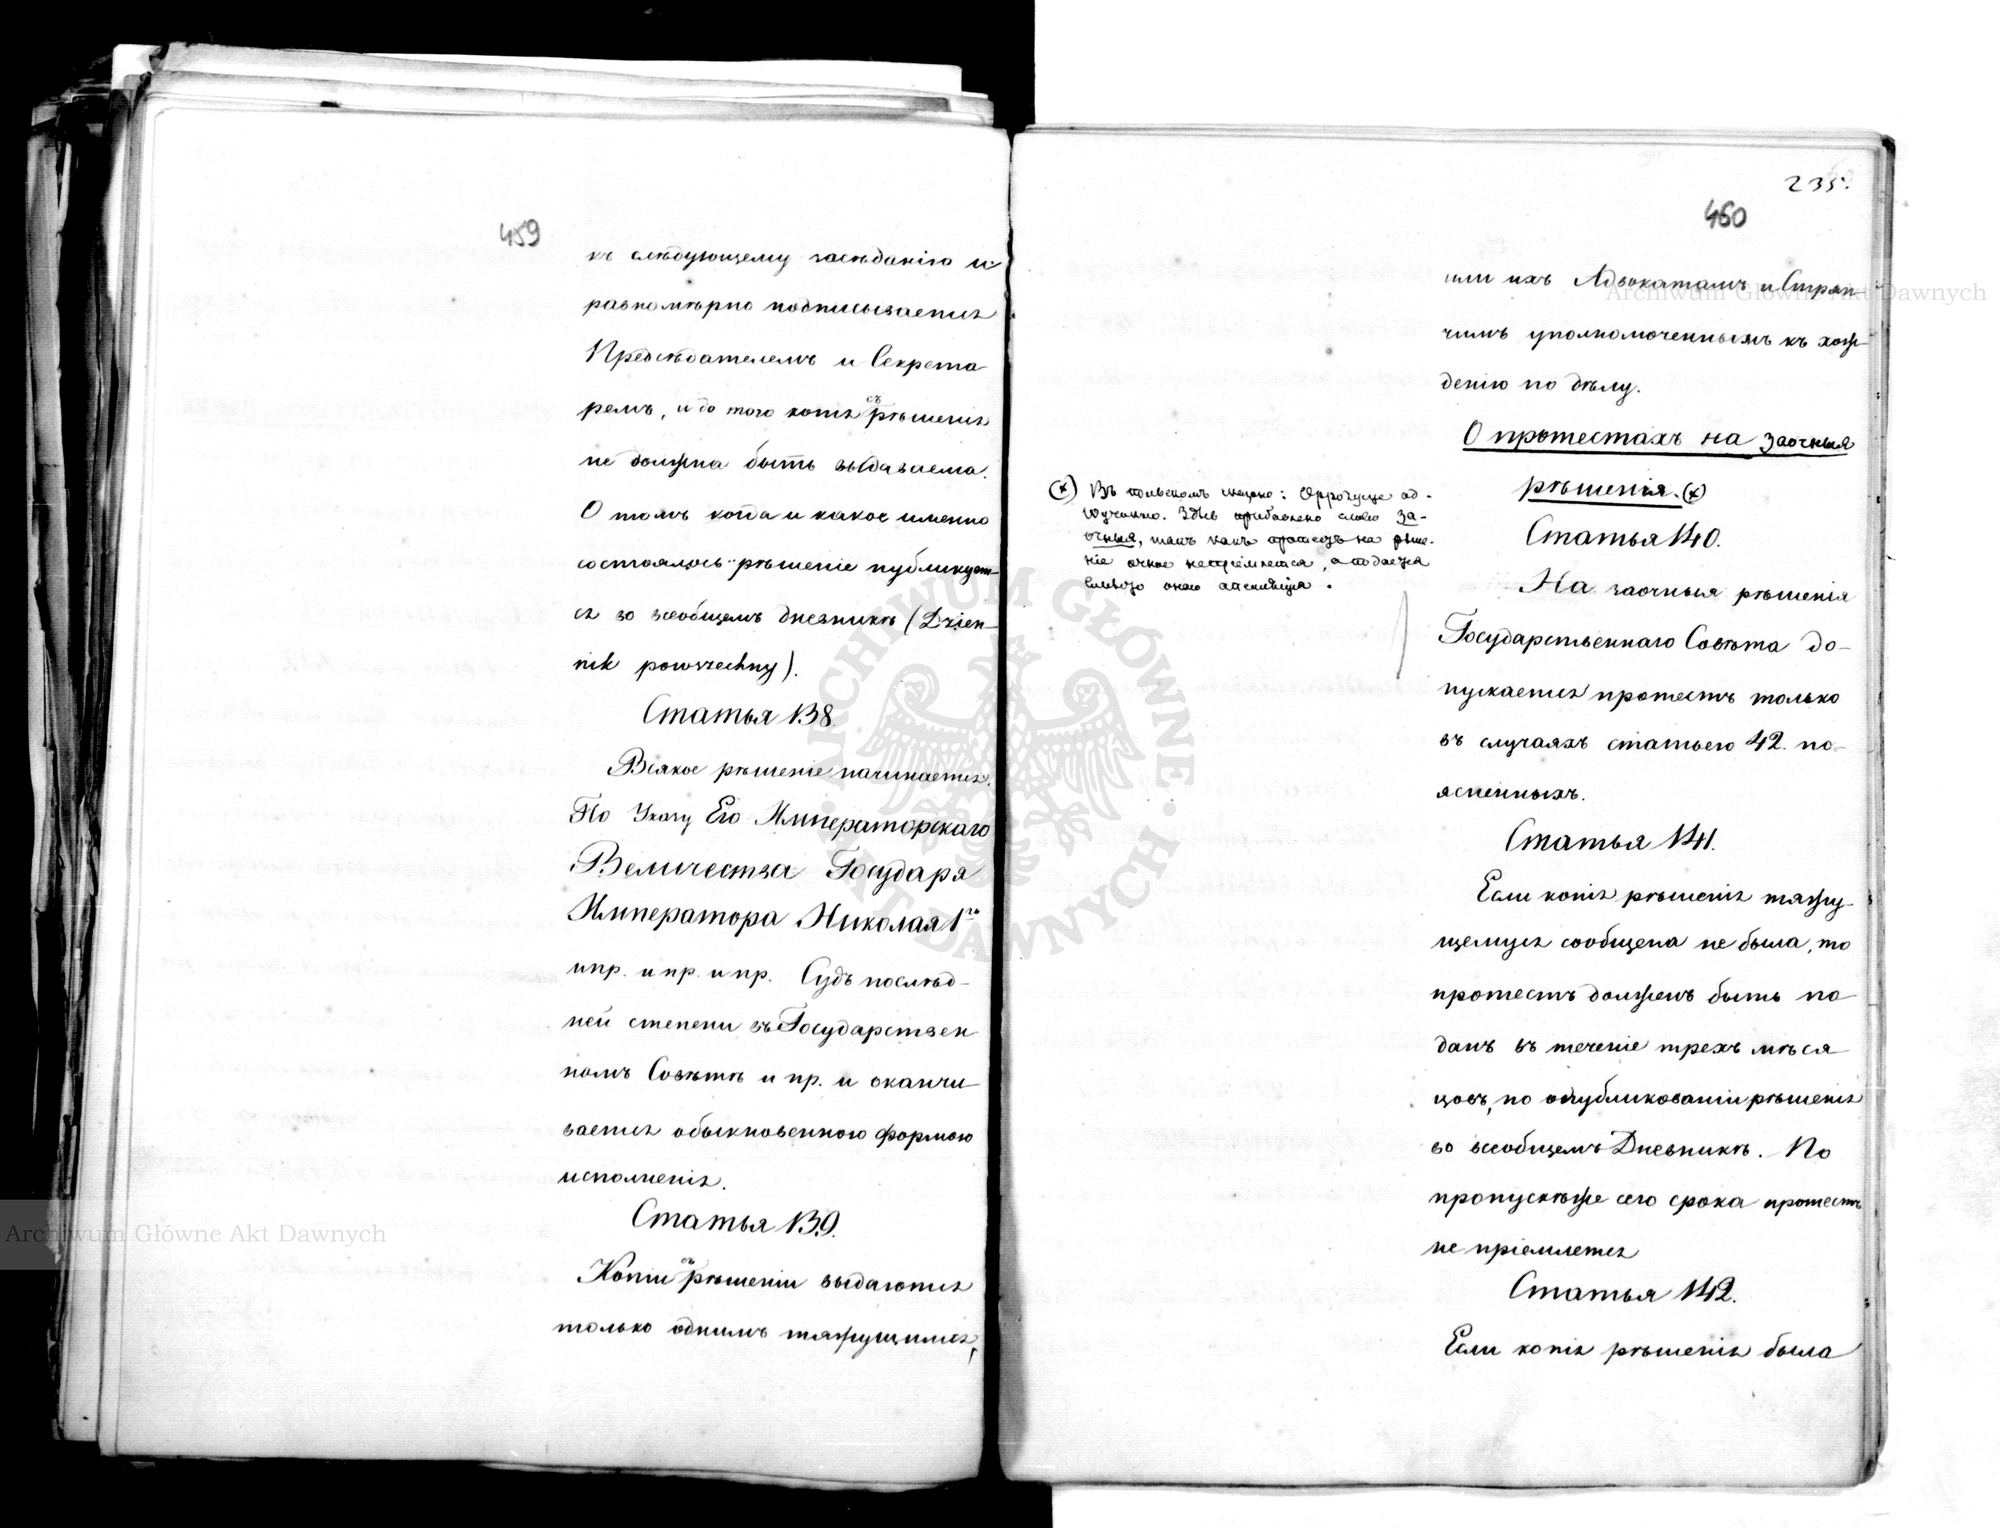 459
къ слѣдующему засѣданію и
равномѣрно подписывается
Предсѣдателемъ и Секрета
ремъ, и до того копія съ рѣшенія
не должна быть выдаваема.
О томъ когда и какое именно
состоялось рѣшеніе публикует-
ся во всеобщемъ дневникѣ (Dzien-
nik powszechny).
Статья 138.
Всякое рѣшеніе начинается.
По Указу Его Императорскаго
Величества Государя
Императора Николая 1го
и пр. и пр. и пр. Судъ послѣд-
ней степени въ Государствен
номъ Совѣтѣ и пр. и оканчи-
вается обыкновенною формою
исполненія.
Статья 139.
Копіи съ рѣшеніи выдаются
только однимъ тяжущимся,
235.
460
или ихъ Адвокатамъ и Стряп-
чимъ уполномоченнымъ къ хож-
денію по дѣлу.
О протестахъ на заочныя
рѣшенія. (x)
(x) Въ польскомъ сказано: od-
Здѣсь прибавлено слово за-
очныя, такъ какъ протестъ на рѣше-
ніе очное непріемлется, а подается
апелляція.
Статья 140.
На заочныя рѣшенія
Государственнаго Совѣта до-
пускается протестъ только
въ случаяхъ статьею 42. по-
ясненныхъ.
Статья 141.
Если копія рѣшенія тяжу-
щемуся сообщена не была, то
протестъ долженъ быть по
данъ въ теченіе трехъ мѣся
цовъ, по опубликованіи рѣшенія
во всеобщемъ Дневникѣ. По
пропускѣже сего срока протестъ
не пріемлется
Статья 142.
Если копія рѣшенія была
Archiwum Główne Akt Dawnych
Archiwum Główne Akt Dawnych
ARCHIWUM GŁÓWNE AKT DAWNYCH